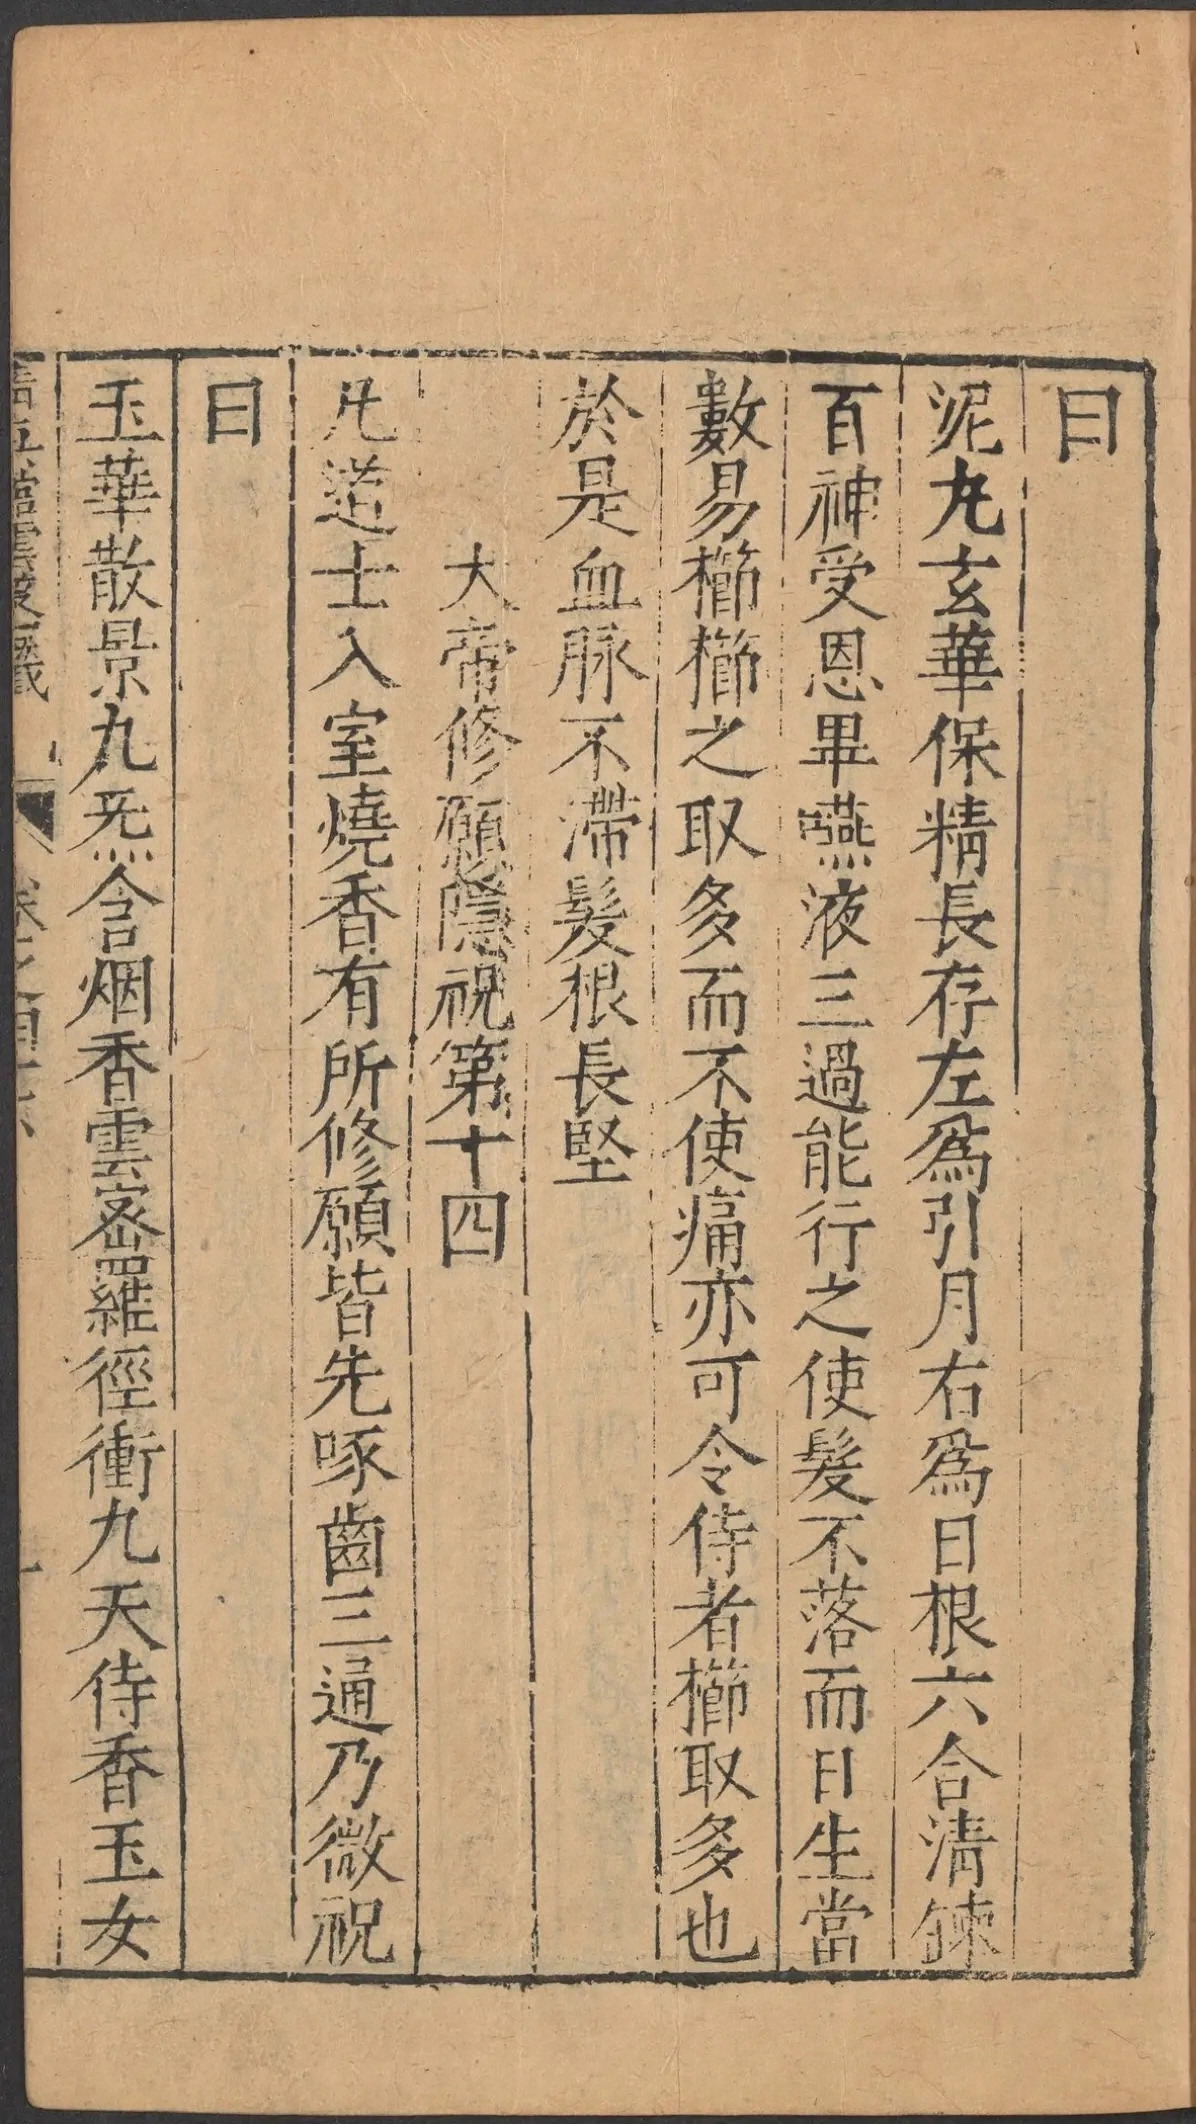 曰
泥丸玄華保精長存左爲引月右爲日根六合清鍊
百神受恩畢嚥液三過能行之使髮不落而日生當
數易櫛櫛之取多而不使痛亦可令侍者櫛取多也
於是血脉不滯髮根長堅
大帝修願隱祝第十四
凡道士入室燒香有所修願皆先啄齒三通乃微祝
曰
玉華散景九炁含烟香雲宻羅徑衝九天侍香玉女